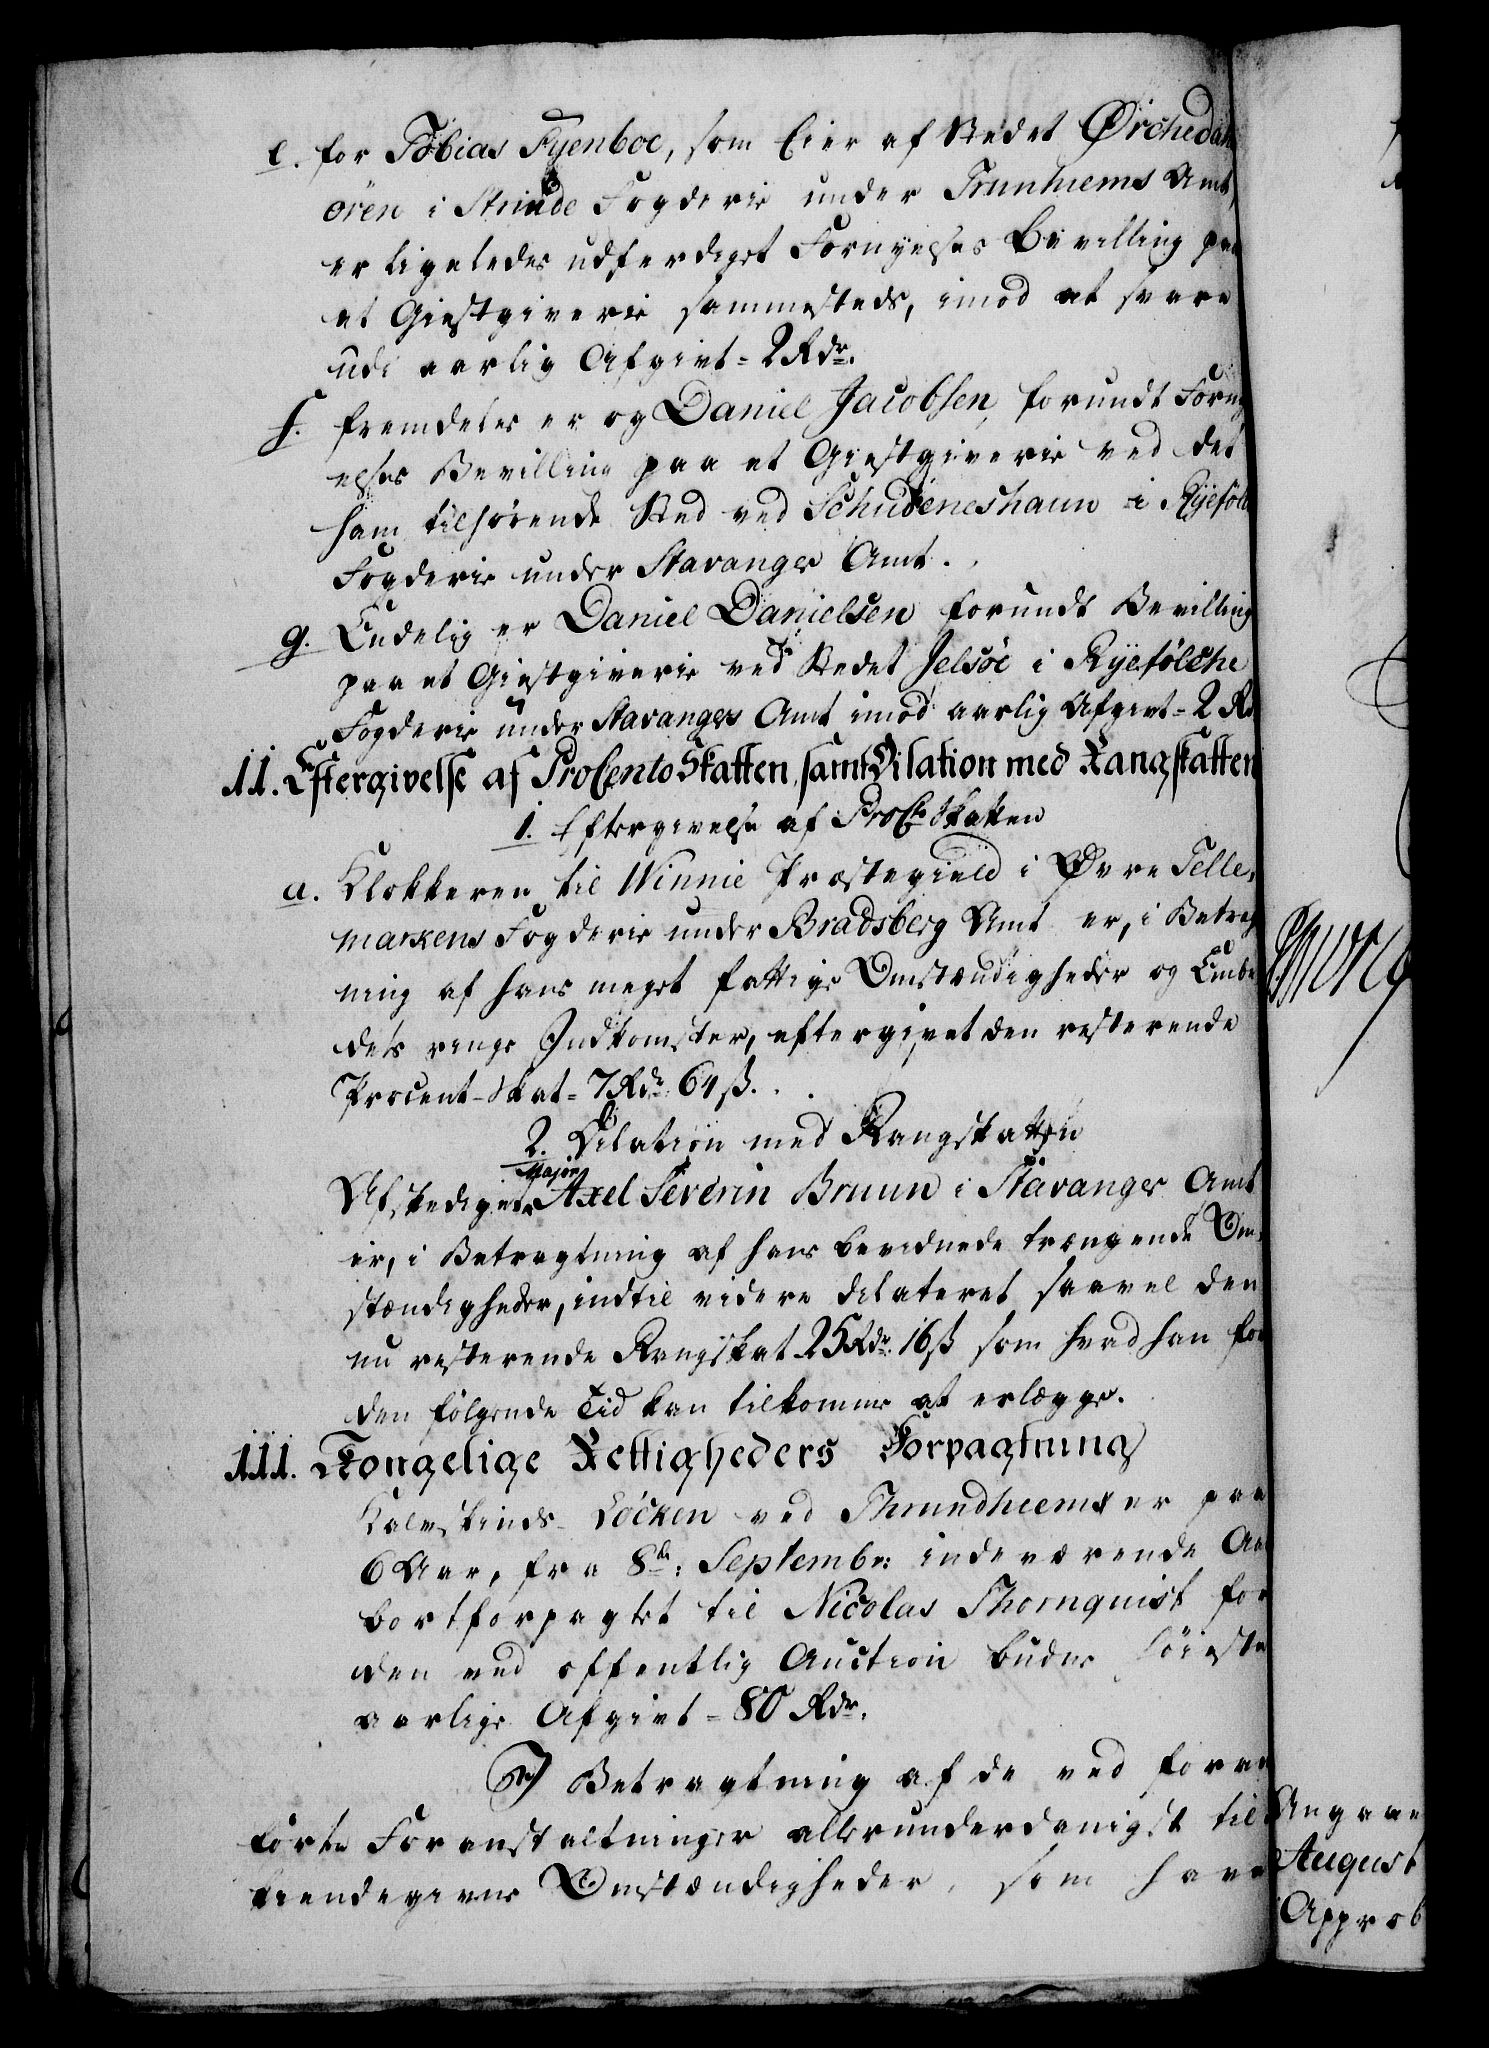 e. for Tobias Fyenboe, som Eier af Stedet Ørchedahls
ören i Strinde Fogderie under Trunhiems Amt,
er ligeledes udferdiget Fornyelses Bevilling paa
et Giestgiverie sammesteds, imod at svare
udi aarlig Afgivt = 2 Rdr.
f. fremdeles er og Daniel Jacobsen, forundt Forny
elses Bevilling paa et Giestgiverie ved det
ham tilhørende Sted ved Schudeneshaun i Ryefølche
Fogderie under Stavanger Amt.
g. Endelig er Daniel Danielsen forundt Bevilling
paa et Giestgiverie ved Stedet Jelsöe i Ryefölche
Fogderie under Stavanger Amt imod aarlig Afgivt = 2 Rd
II. Eftergivelse af ProCento Skatten, samt Dilation med Rangskatten
1. Eftergivelse af ProCto Skatten
a. Klokkeren til Winnie Præstegield i Øvre Telle,
markens Fogderie under Bradsberg Amt er, i Betragt
ning af hans meget fattige Omstændigheder og Embe
dets ringe Indkomster, eftergivet den resterende
Procent-Skat = 7 Rdr 64 ß.
2. Dilation med Rangskatten
Afskedigede Major Axel Severin Bruun i Stavanger Amt
er, i Betragtning af hans bevidnede trængende Om,
stændigheder, indtil videre dilateret saavel den
nu resterende Rangskat 25 Rdr. 16 ß som hvad han for
den følgende Tid kan tilkomme at erlægge.
III. Kongelige Rettigheders Forpagtning
Kalvskinds-Löcken ved Thrundhiem er paa
6 Aar, fra 8de: Septembr: indeværende Aar
bortforpagtet til Nicolas Thornquist for
den ved offentlig Auction budne høieste
aarlige Afgivt = 80 Rdr.
I Betragtning af de ved foran
førte Foranstaltninger allerunderdanigst til
kiendegivne Omstændigheder, som have
Angaaen
August
Approb